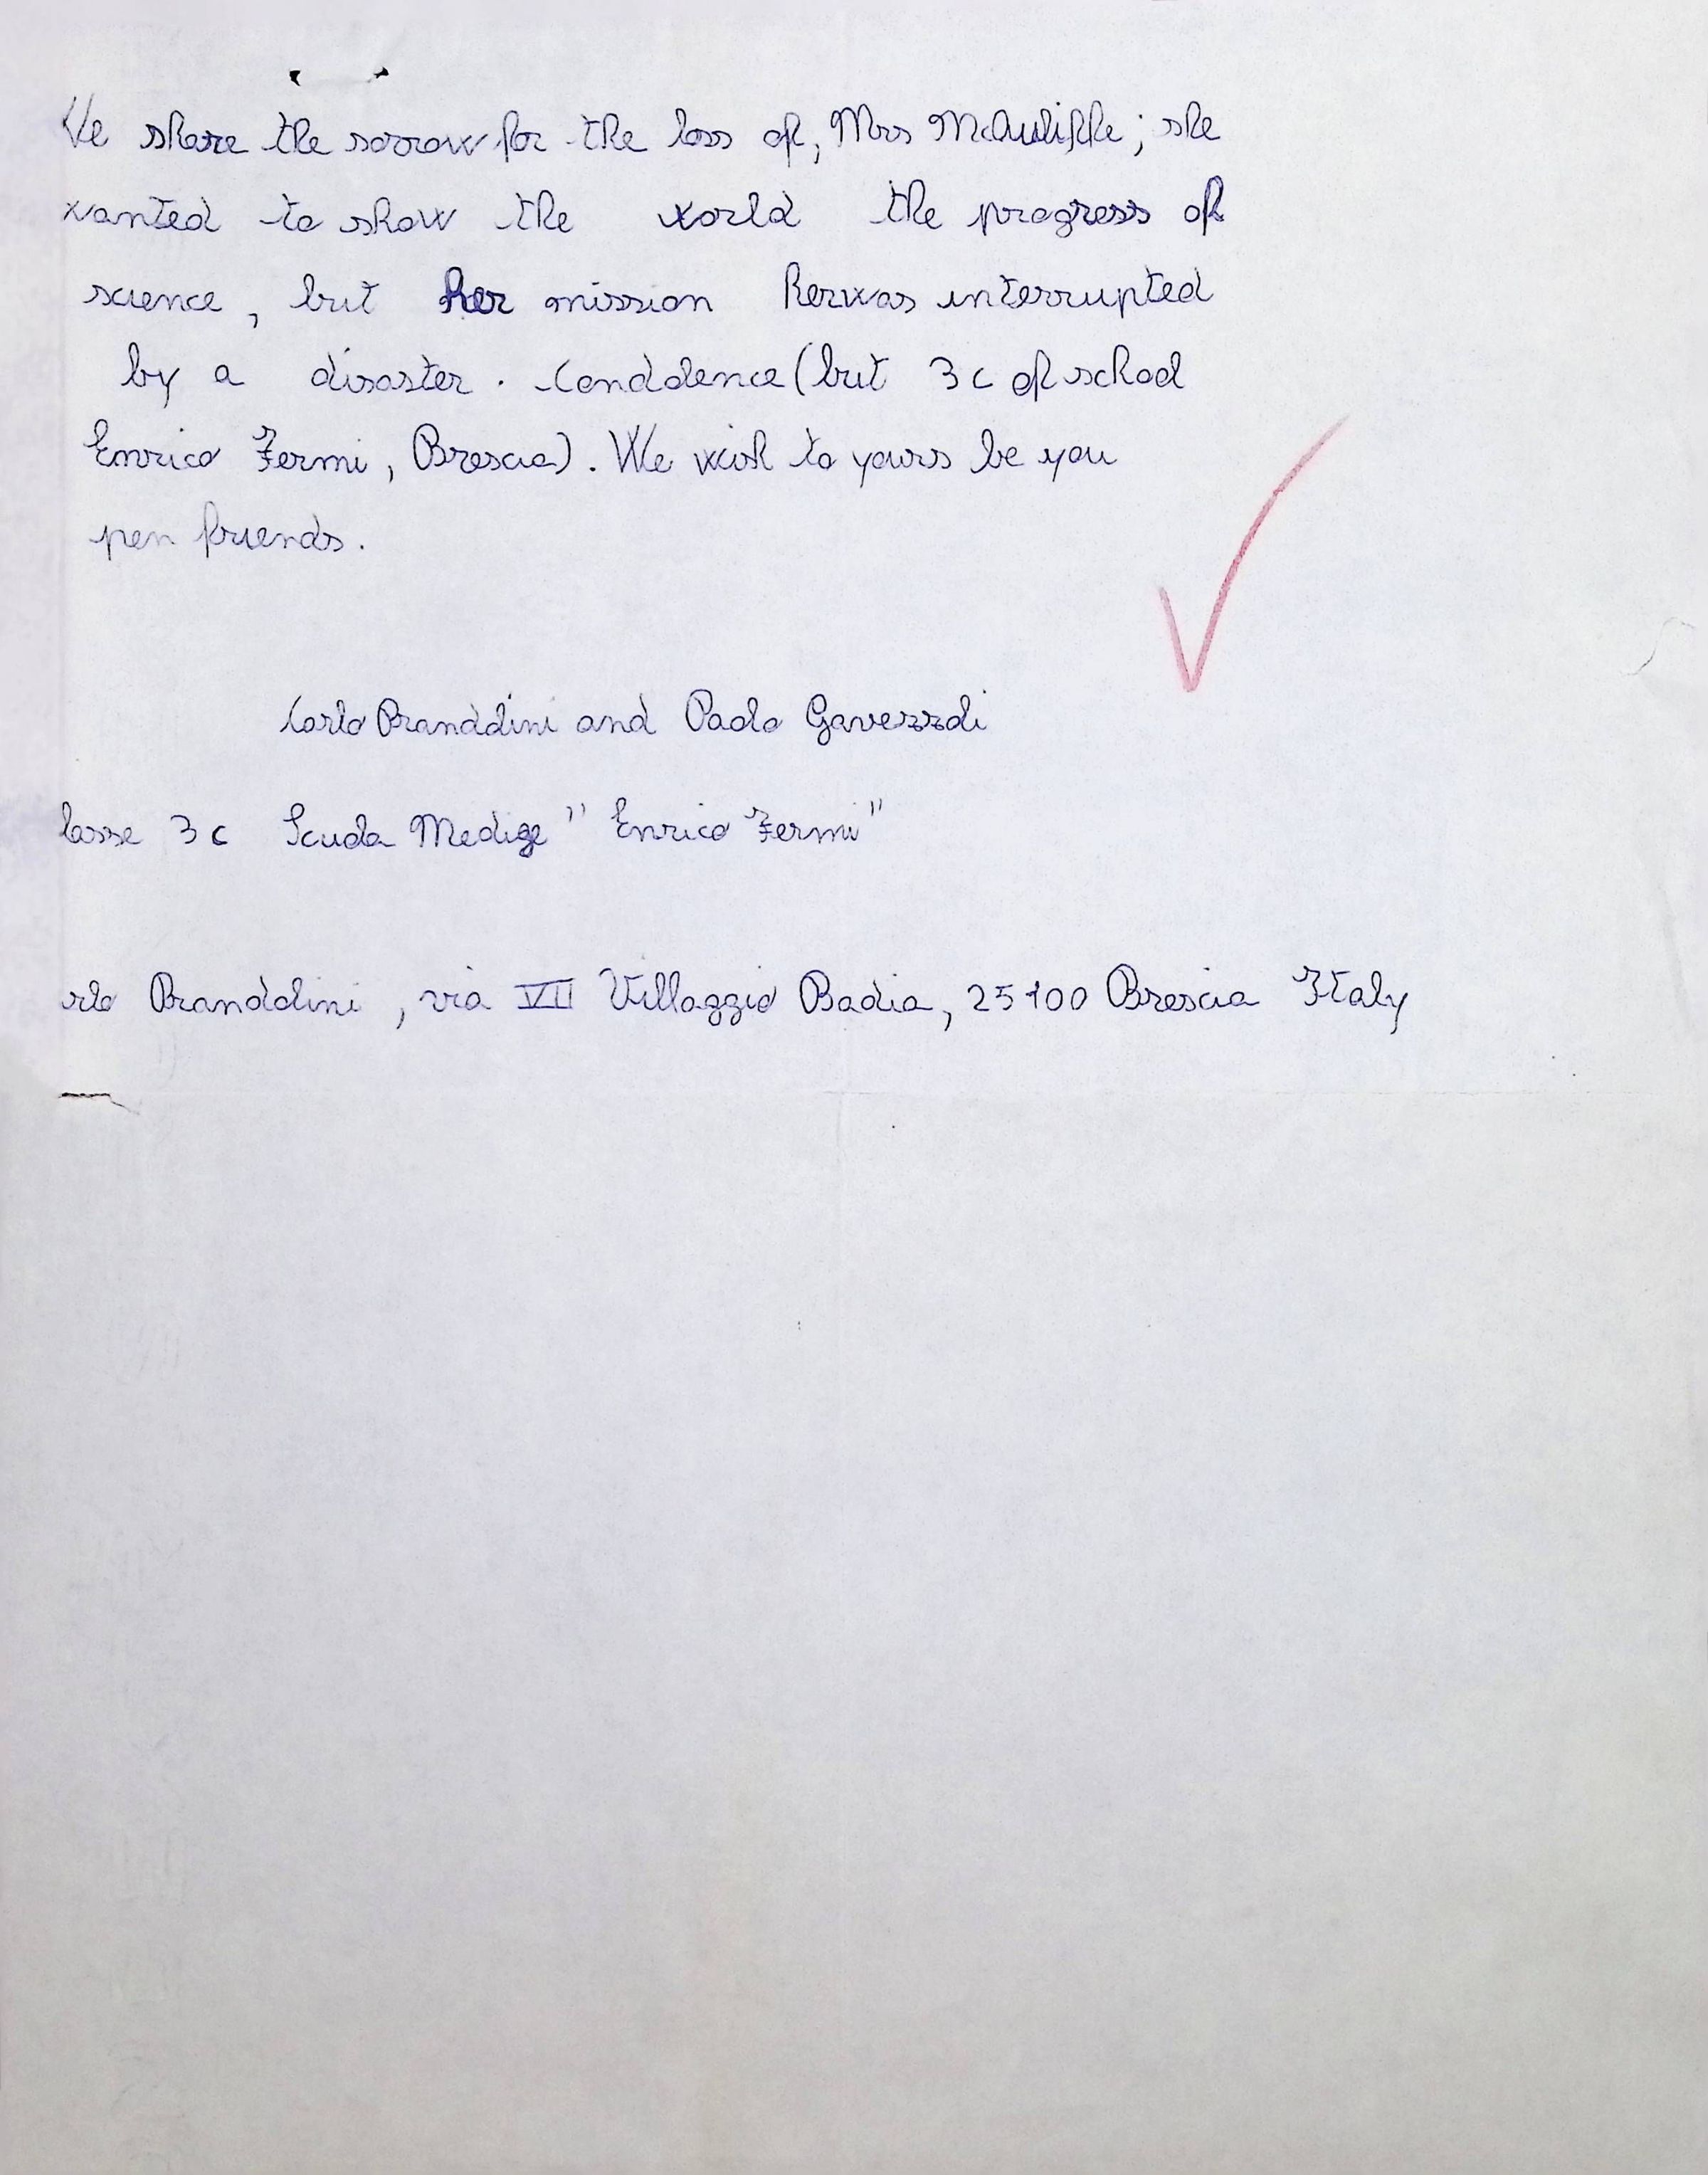 We share the sorrow for the loss of, Mrs McAuliffe; she
wanted to show the world the progress of
science, but her mission her was interrupted
by a disaster. Conddence (but 3c of school
Enrico Fermi, Brescia). We wish to yours be you
pen friends.
Carlo Pranddini and Paolo Gavezzoli
lasse 3c Scuola Medige "Enrico Fermi"
rlo Pranddini, via VII Villaggio Badia, 25100 Brescia Italy